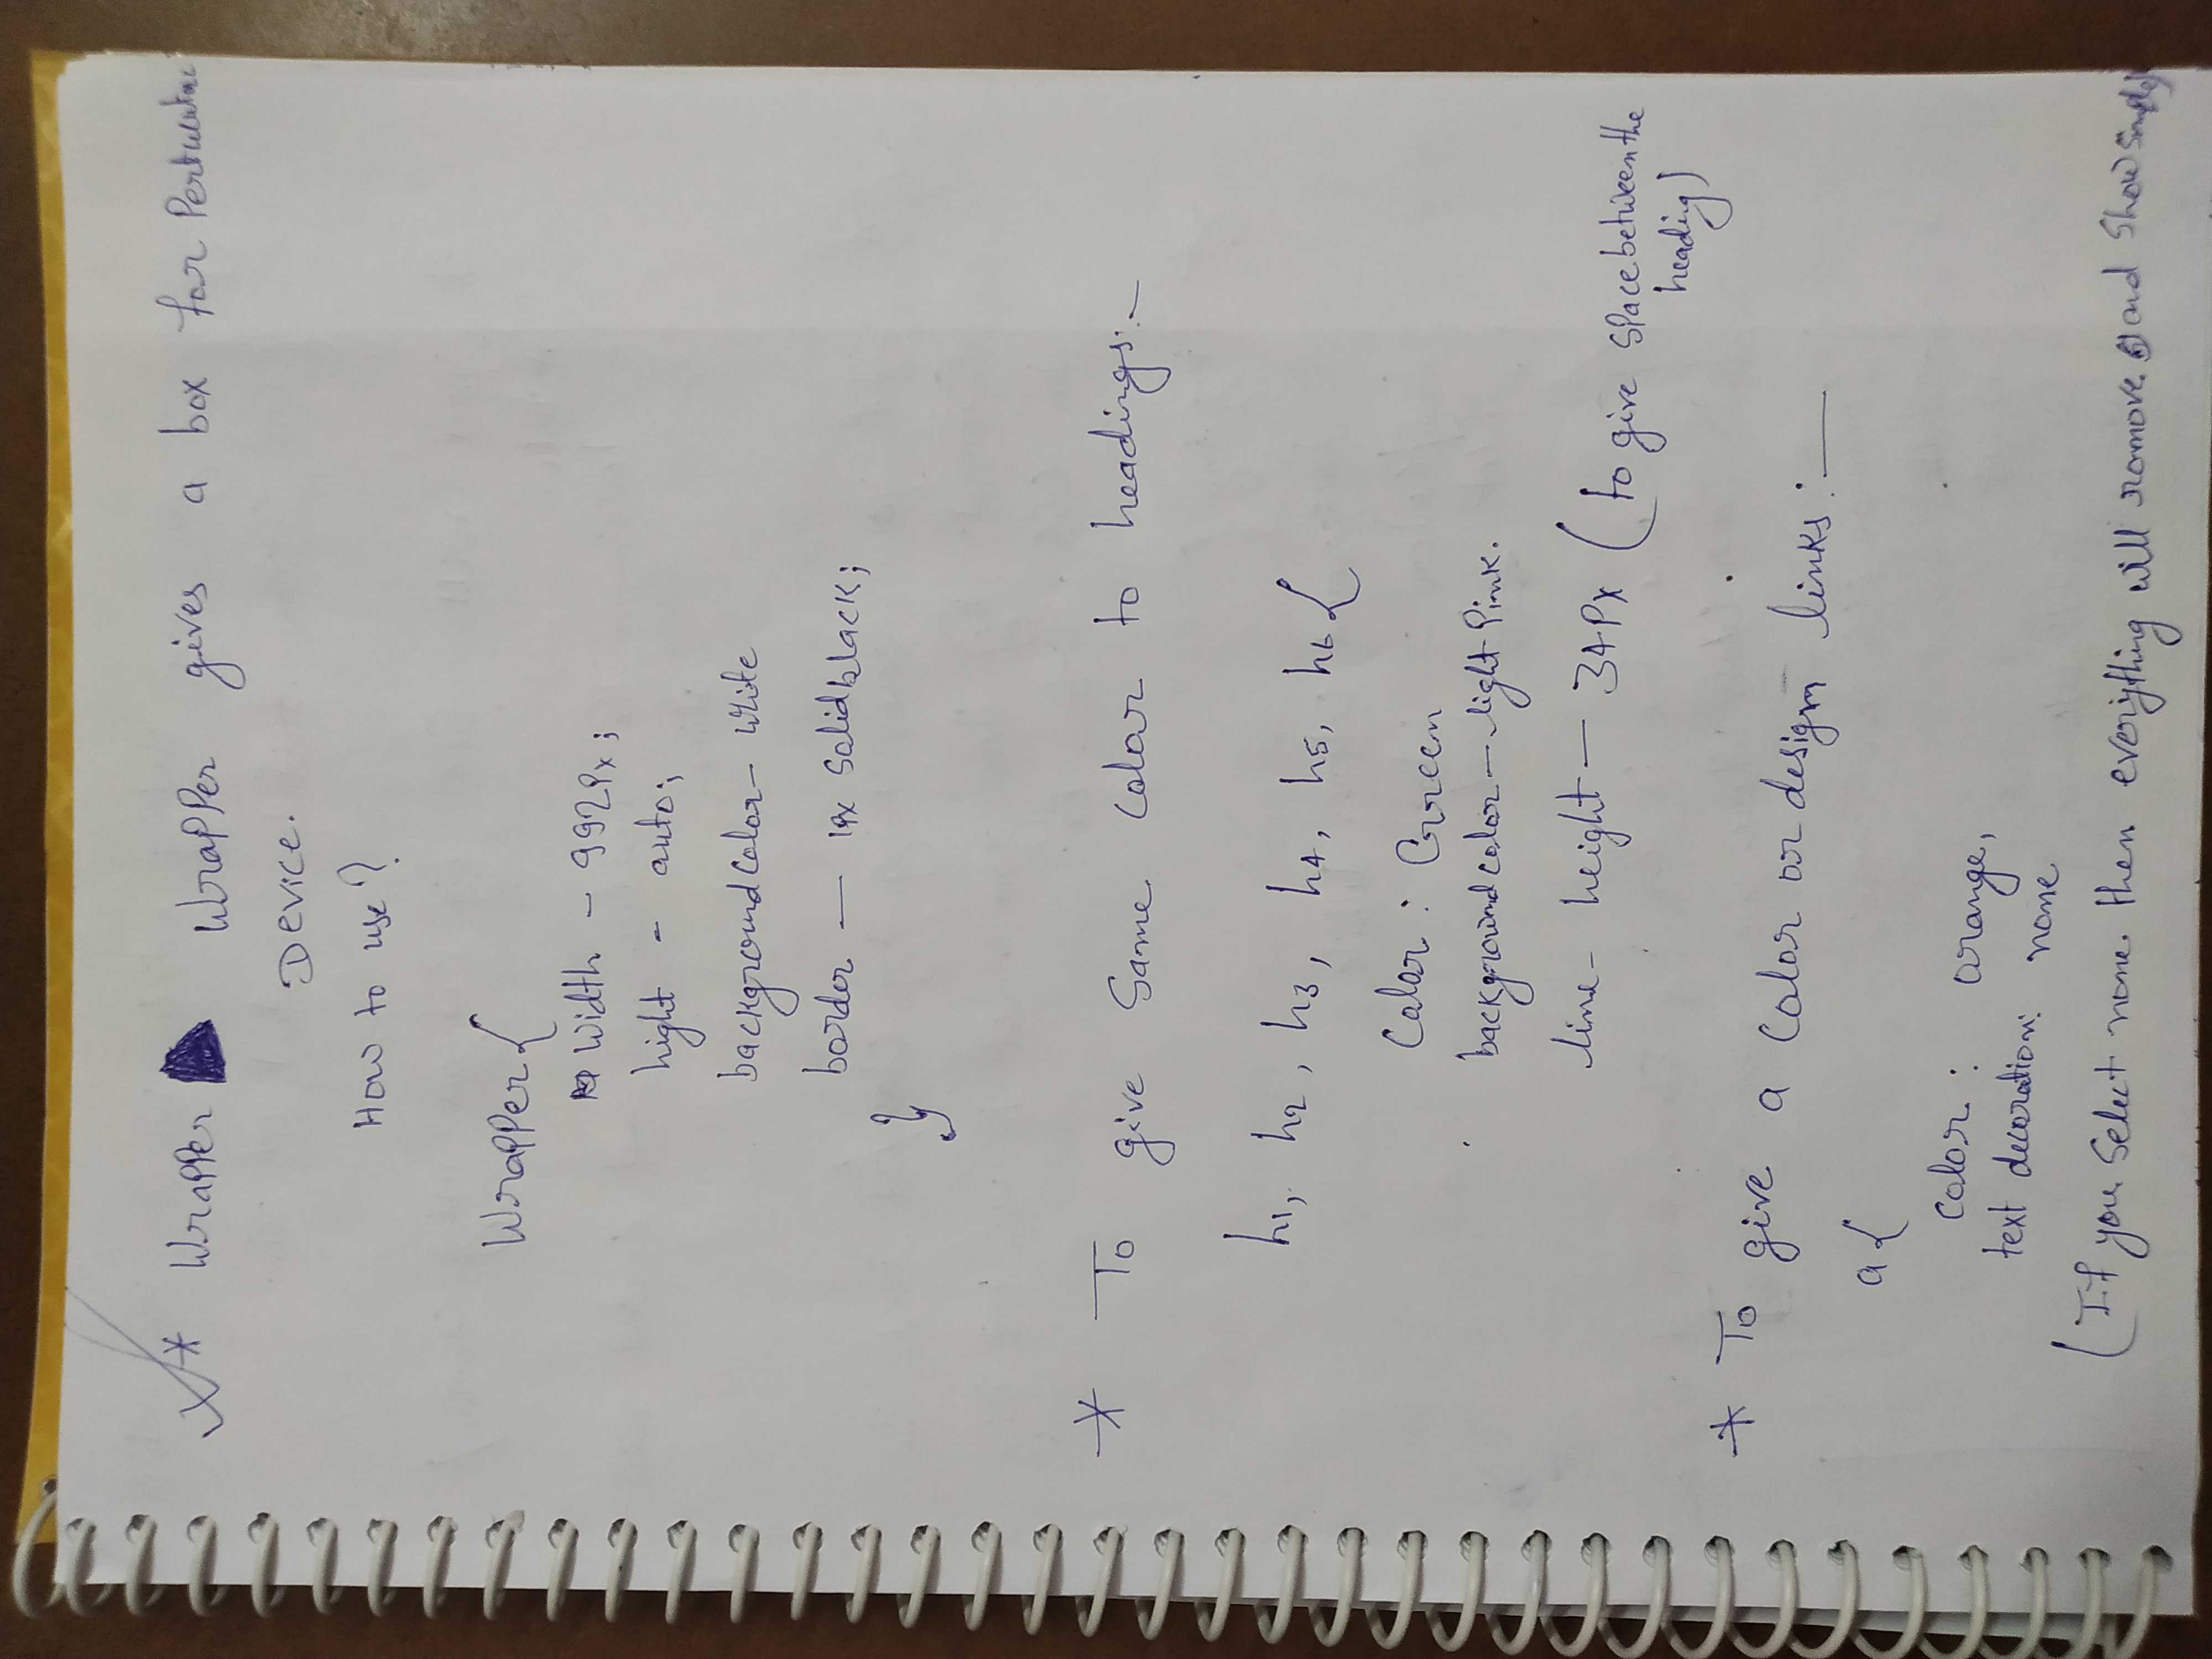 * Wrapper Wrapper gives a box for
Device.
How to use?
Wrapper{
width - 992Px;
hight - auto;
background color - write
border — 1px solid black;
}
* To give Same color to headings:-
h1, h2, h3, h4, h5, h6{
Color : Green
background color — light Pink.
line- height — 34Px (to give space between the
heading)
* To give a Color or design links:—
a{
Color : orange,
text decoration: none
(If you select none. then everything will romove. and show simply